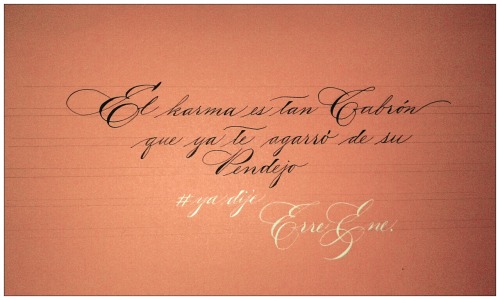 El karma es tan Cabrón
que ya te agarró de su
Pendejo
#ya dije
Erre Ene.